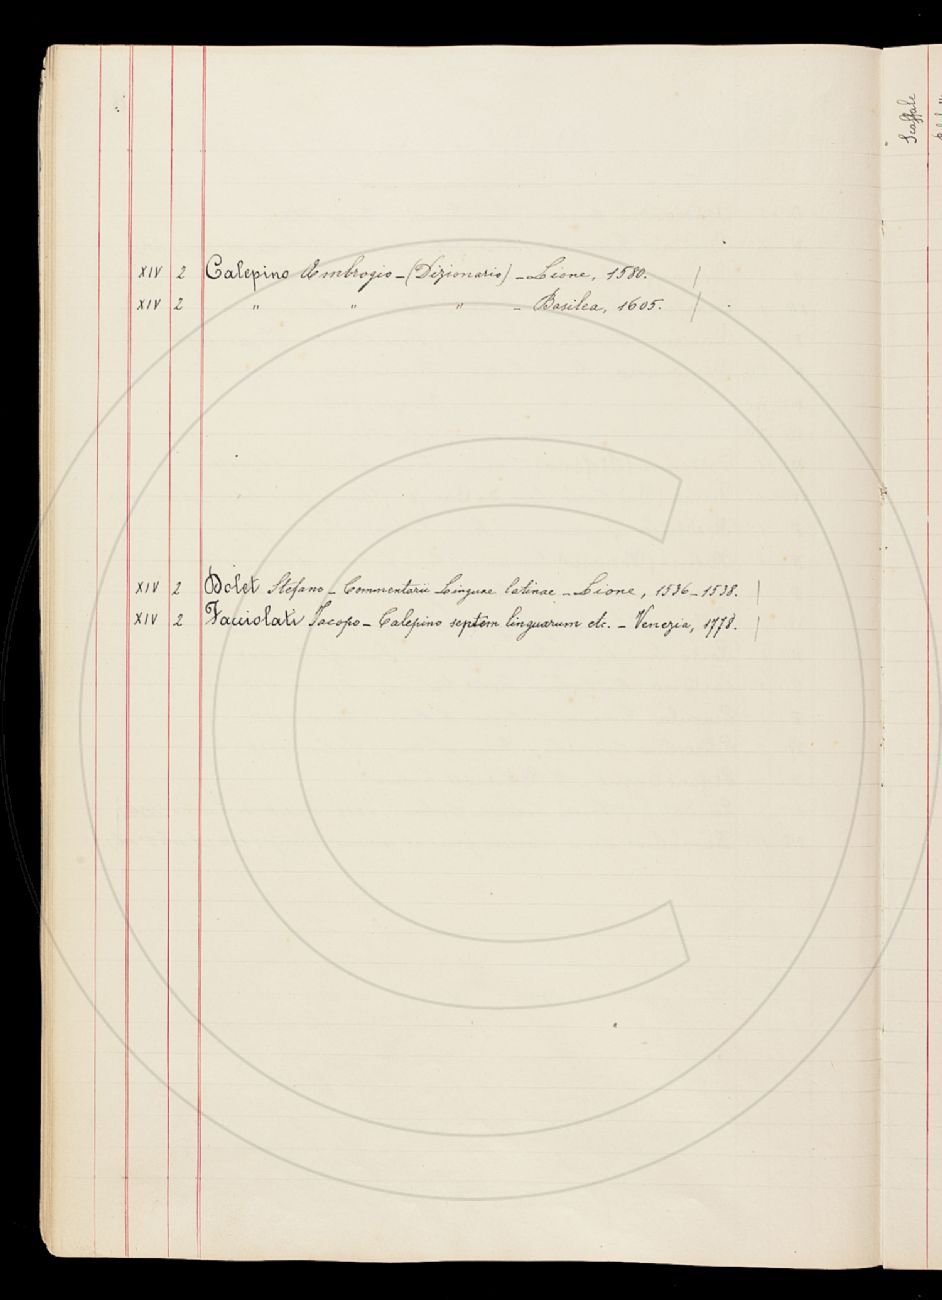 XIV 2 Calepino Ambrogio - (Dizionario) - Lione, 1580.
XIV 2 " " " - Basilea, 1605.
XIV 2 Dolet Stefano - Commentarii Linguae latinae - Lione, 1536-1538.
XIV 2 Facciolati Jacopo - Calepino septem linguarum etc. - Venezia, 1778.
Scaffale